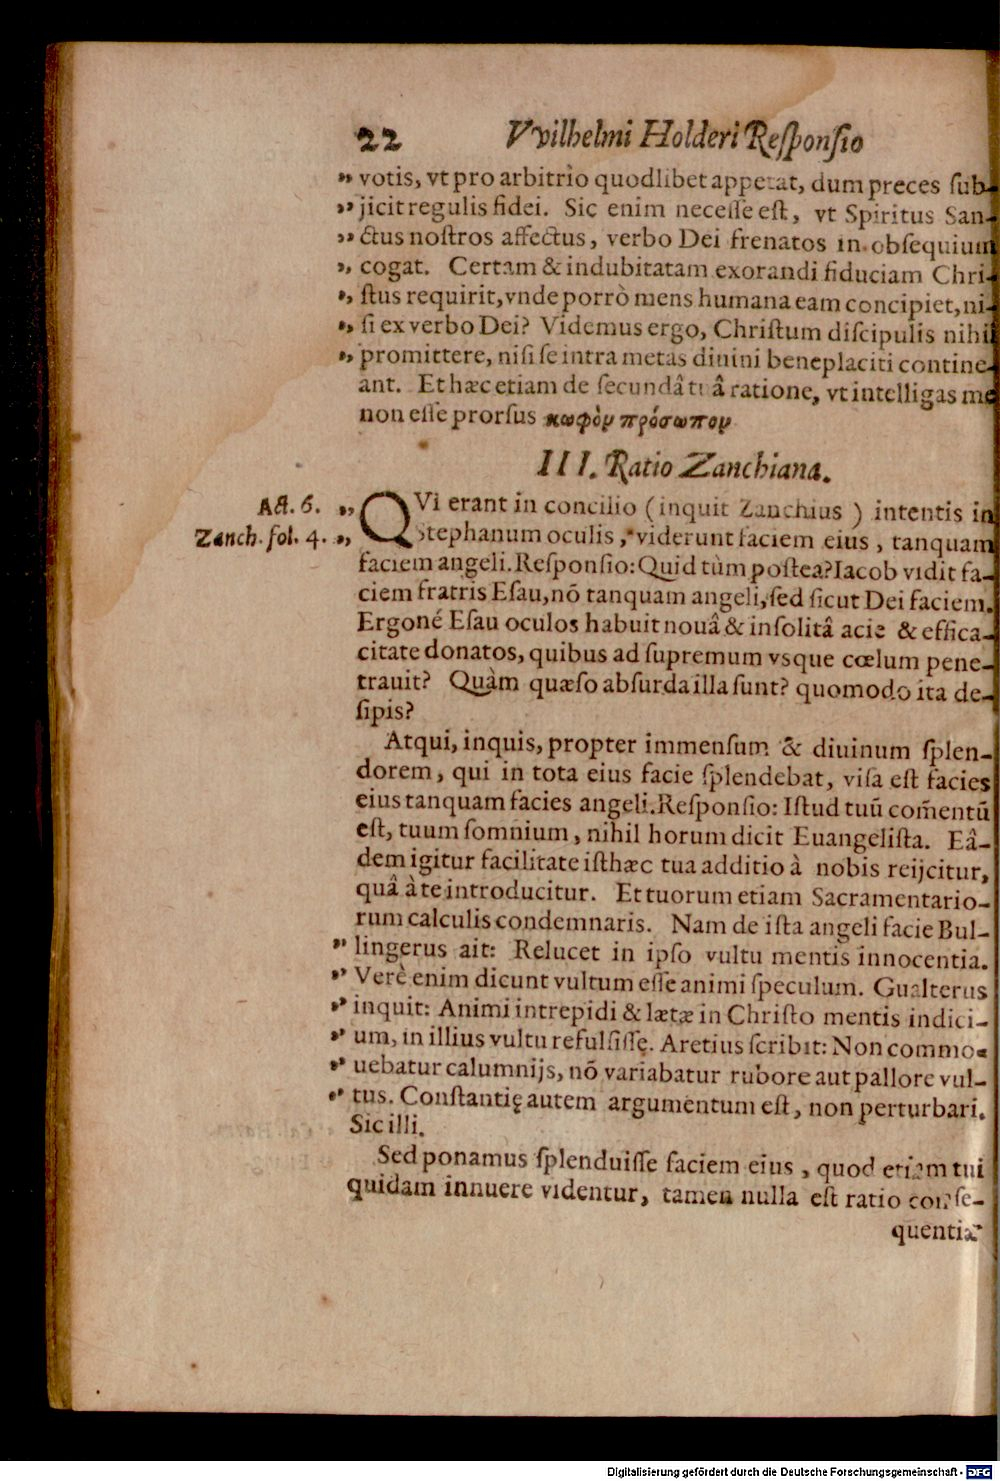 22 Vvilhelmi Holderi Reſponſio
„ votis, vt pro arbitrio quodlibet appetat, dum preces ſub-
„ jicit regulis fidei. Sic enim neceſſe eſt, vt Spiritus San-
„ ctus noſtros affectus, verbo Dei frenatos in obſequium
„ cogat. Certam & indubitatam exorandi fiduciam Chri-
„ ſtus requirit, vnde porrò mens humana eam concipiet, ni-
„ ſi ex verbo Dei? Videmus ergo, Chriſtum diſcipulis nihil
„ promittere, niſi ſe intra metas diuini beneplaciti contine-
ant. Et hæc etiam de ſecundâ tuâ ratione, vt intelligas me
non eſſe prorſus κωφὸν πρόσωπον
III. Ratio Zanchiana.
Act. 6. „ QVi erant in concilio (inquit Zanchius) intentis in
Zanch. fol. 4. „ Stephanum oculis, viderunt faciem eius, tanquam
faciem angeli. Reſponſio: Quid tùm poſtea? Iacob vidit fa-
ciem fratris Eſau, nō tanquam angeli, ſed ſicut Dei faciem.
Ergoné Eſau oculos habuit nouâ & inſolitâ acie & effica-
citate donatos, quibus ad ſupremum vsque cœlum pene-
trauit? Quàm quæſo abſurda illa ſunt? quomodo ita de-
ſipis?
Atqui, inquis, propter immenſum & diuinum ſplen-
dorem, qui in tota eius facie ſplendebat, viſa eſt facies
eius tanquam facies angeli. Reſponſio: Iſtud tuū com̄entū
eſt, tuum ſomnium, nihil horum dicit Euangeliſta. Eâ-
dem igitur facilitate iſthæc tua additio à nobis reijcitur,
quâ à te introducitur. Et tuorum etiam Sacramentario-
rum calculis condemnaris. Nam de iſta angeli facie Bul-
„ lingerus ait: Relucet in ipſo vultu mentis innocentia.
„ Verè enim dicunt vultum eſſe animi ſpeculum. Gualterus
„ inquit: Animi intrepidi & lætæ in Chriſto mentis indici-
„ um, in illius vultu refulſiſſę. Aretius ſcribit: Non commo-
„ uebatur calumnijs, nō variabatur rubore aut pallore vul-
„ tus. Conſtantię autem argumentum eſt, non perturbari.
Sic illi.
Sed ponamus ſplenduiſſe faciem eius, quod etiam tui
quidam innuere videntur, tamen nulla eſt ratio conſe-
quentiæ
Digitalisierung gefördert durch die Deutsche Forschungsgemeinschaft - DFG